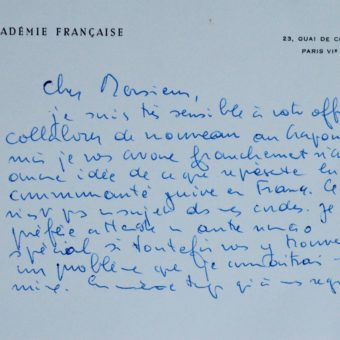 ADÉMIE FRANÇAISE
23, QUAI DE CO
PARIS VIe
Cher Monsieur,
je suis très sensible à votre off
collaborer de nouveau au
mais je vous avoue franchement n'a
aucune idée de ce que représente la
communauté juive en France. Ce
n'est pas un sujet dans cordes. Je
préfère attendre un autre numéro
spécial si toutefois vous y trouve
un problème que je connaitrai
mieux. En même temps qu'à vos reg